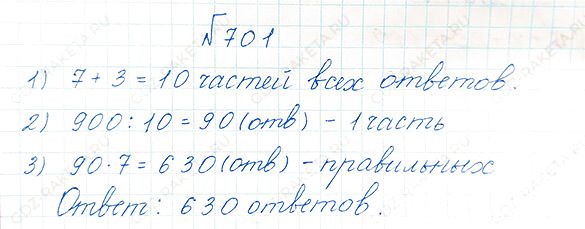 №701
1) 7 + 3 = 10 частей всех ответов.
2) 900 : 10 = 90 (отв) - 1 часть
3) 90 · 7 = 630 (отв) - правильных
Ответ: 630 ответов.